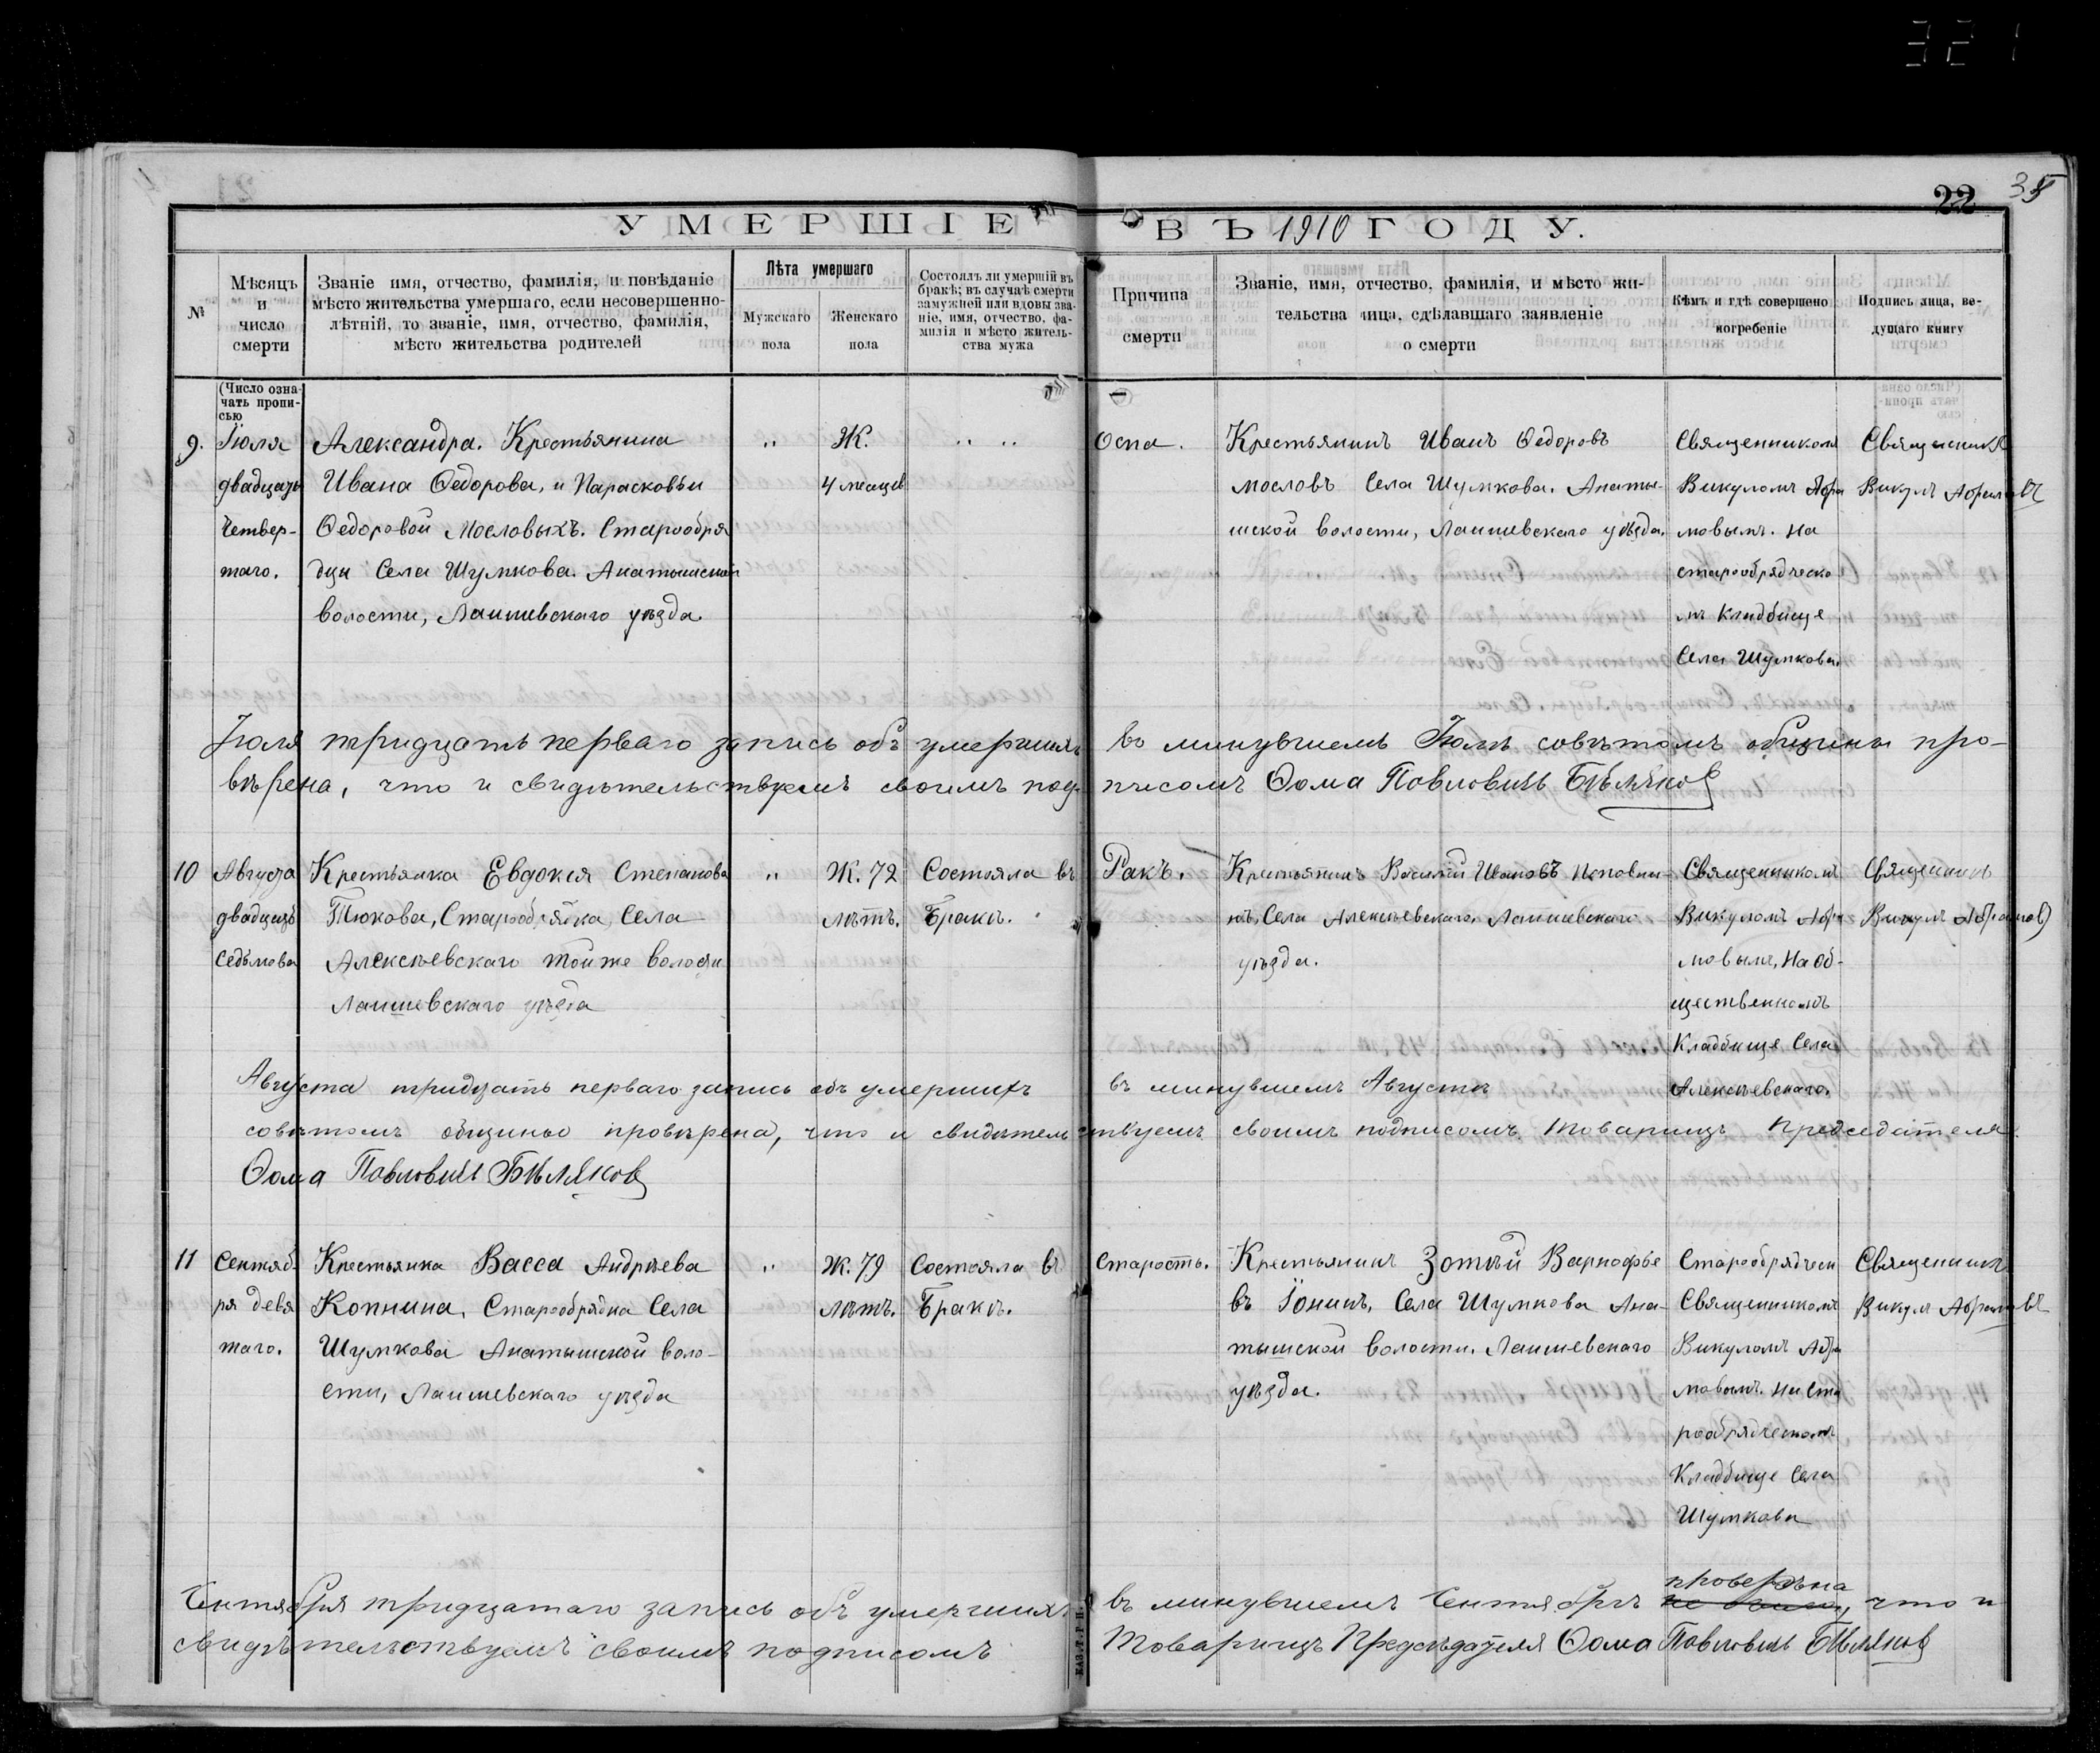 321
22 35
УМЕРШІЕ ВЪ 1910 ГОДУ.
№
Мѣсяцъ и число смерти
Званіе имя, отчество, фамилія, и повѣданіе
мѣсто жительства умершаго, если несовершенно-
лѣтній, то званіе, имя, отчество, фамилія,
мѣсто жительства родителей
Лѣта умершаго
Мужскаго пола
Женскаго пола
Состоялъ ли умершій въ
бракѣ; въ случаѣ смерти
замужней или вдовы зва-
ніе, имя, отчество, фа-
милія и мѣсто житель-
ства мужа
Причина смерти
Званіе, имя, отчество, фамилія, и мѣсто жи-
тельства лица, сдѣлавшаго заявленіе
о смерти
Кѣмъ и гдѣ совершено
погребеніе
Подпись лица, ве-
дущаго книгу
(Число озна-
чать пропи-
сью
9.
Іюля
двадцать
четвер-
таго.
Александра. Крестьянина
Ивана Ѳедорова, и Парасковьи
Ѳедоровой Мословыхъ. Старообря
дцы Села Шумкова. Анатышской
волости, Лаишевскаго уѣзда
"
Ж.
4 месяцев
" "
Оспа.
Крестьянинъ Иванъ Ѳедоровъ
Мословъ Села Шумкова. Анаты-
шской волости, Лаишевскаго уѣзда.
Священникомъ
Викуломъ Абра
мовымъ. На
старообрядческо
мъ кладбище
Села Шумкова.
Священникъ
Викулъ Абрамовъ
Іюля тридцать перваго запись объ умершихъ въ минувшемъ Іюлѣ совѣтомъ общины про-
вѣрена, что и свидѣтельствуемъ своимъ подписомъ Ѳома Павловичь Бѣляков
10
Августа
двадцать
седьмова
Крестьянка Евдокея Степанова
Тюкова, Старообрядка Села
Алексѣевскаго той же волости
Лаишевскаго уѣзда
"
Ж. 72
лѣтъ.
Состояла въ
Бракѣ.
Ракъ.
Крестьянинъ Василій Ивановъ
Села Алексѣевскаго, Лаишевскаго
уѣзда.
Священникомъ
Викуломъ Абра
мовымъ, На об-
щественномъ
Кладбище Села
Алексѣевскаго.
Священникъ
Викулъ Абрамов
Августа тридцать перваго запись объ умершихъ въ минувшемъ Августѣ
совѣтомъ общины провѣрена, что и свидѣтельствуемъ своимъ подписомъ Товарищъ Председателя
Ѳома Павловичь Бѣляков
11
Сентяб
ря девя
таго.
Крестьянка Васса Андрѣева
Копнина, Старообрядка Села
Шумкова Анатышской воло-
сти, Лаишевскаго уѣзда
"
Ж. 79
лѣтъ.
Состояла въ
Бракѣ.
Старость.
Крестьянинъ Зотѣй Варнофье
въ Іонинъ, Села Шумкова Ана-
тышской волости. Лаишевскаго
уѣзда.
Старообрядческ
Священникомъ
Викуломъ Абра
мовымъ. На ста
рообрядческомъ
Кладбище Села
Шумкова
Священникъ
Викулъ Абрамовъ
Сентября тридцатаго запись объ умершихъ въ минувшемъ Сентябрѣ проверѣна, что и
свидѣтельствуемъ своимъ подписомъ Товарищъ Предсѣдателя Ѳома Павловичь Бѣляков
КАЗ.Т.Р.Н.